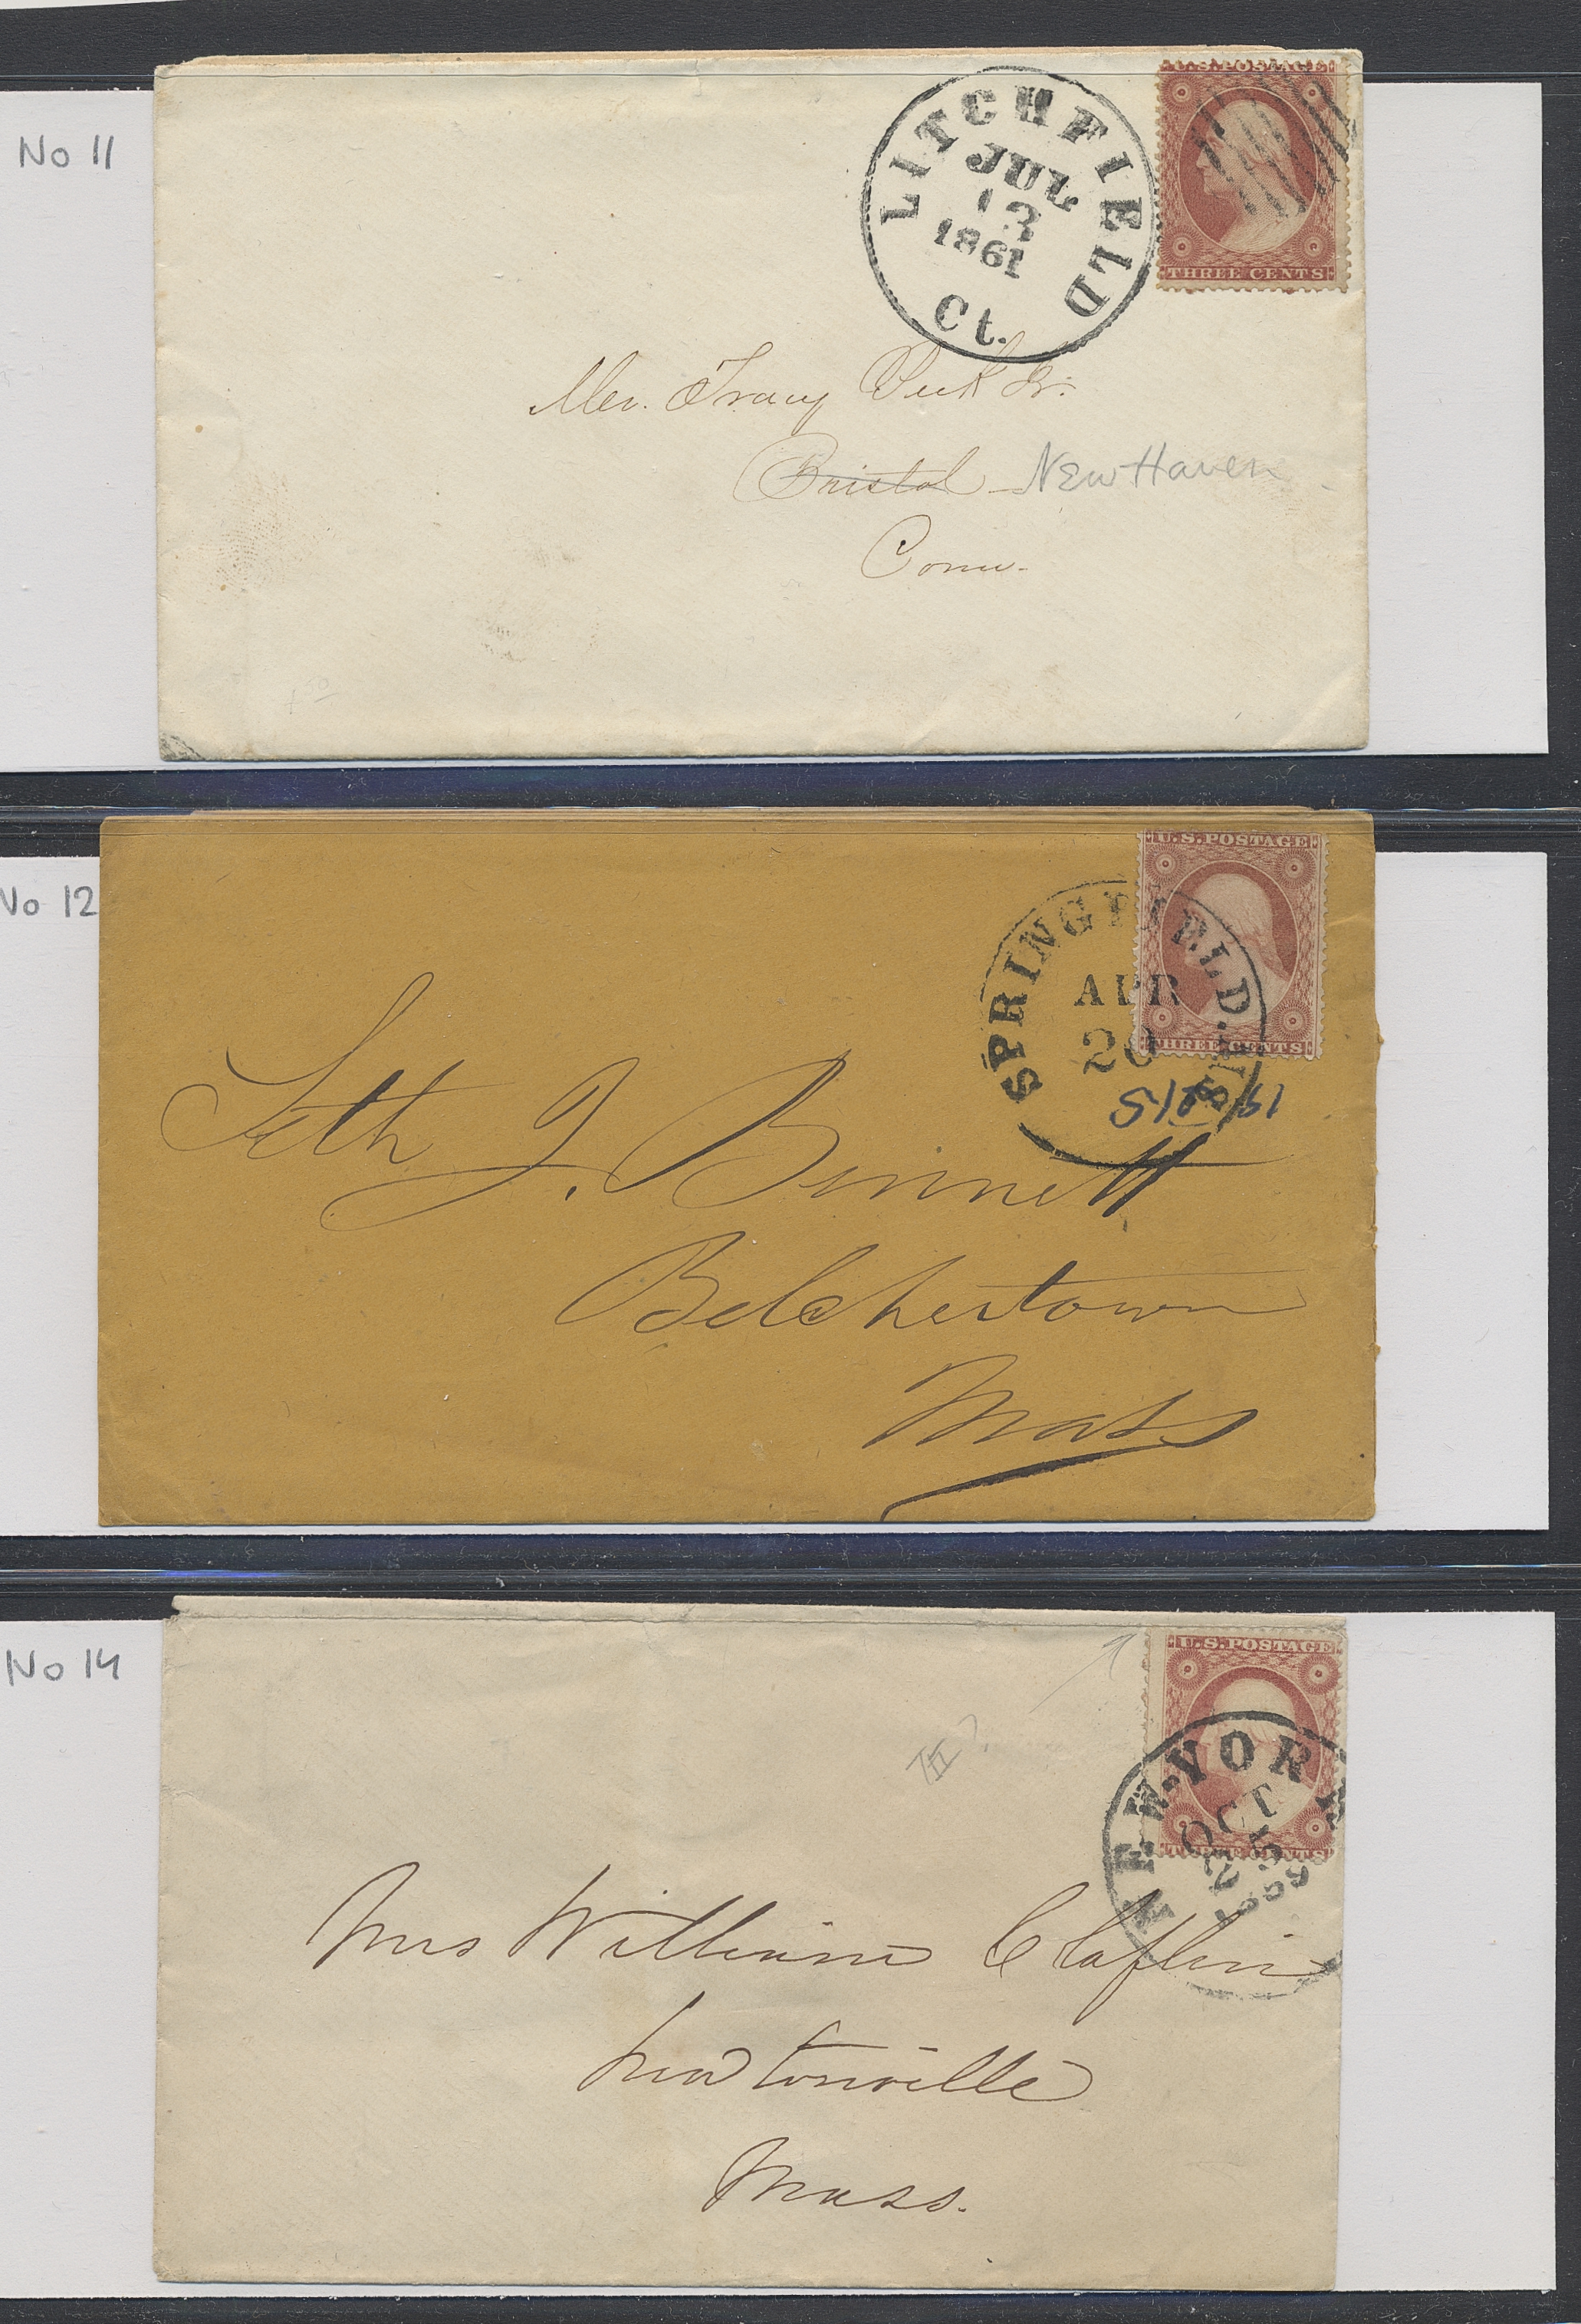 No 11
LITCHFIELD
JUL
13
1861
Ct.
U.S. POSTAGE
THREE CENTS
Mr. Tracy Peck Jr.
Bristol New Haven
Conn.
No 12
U.S. POSTAGE
THREE CENTS
SPRINGFIELD. MS
APR
20
Seth J. Bennett
Belchertown
Mass
No 14
U.S. POSTAGE
THREE CENTS
NEW-YORK
OCT
25
1859
III?
Mrs William Claflin
Newtonville
Mass.